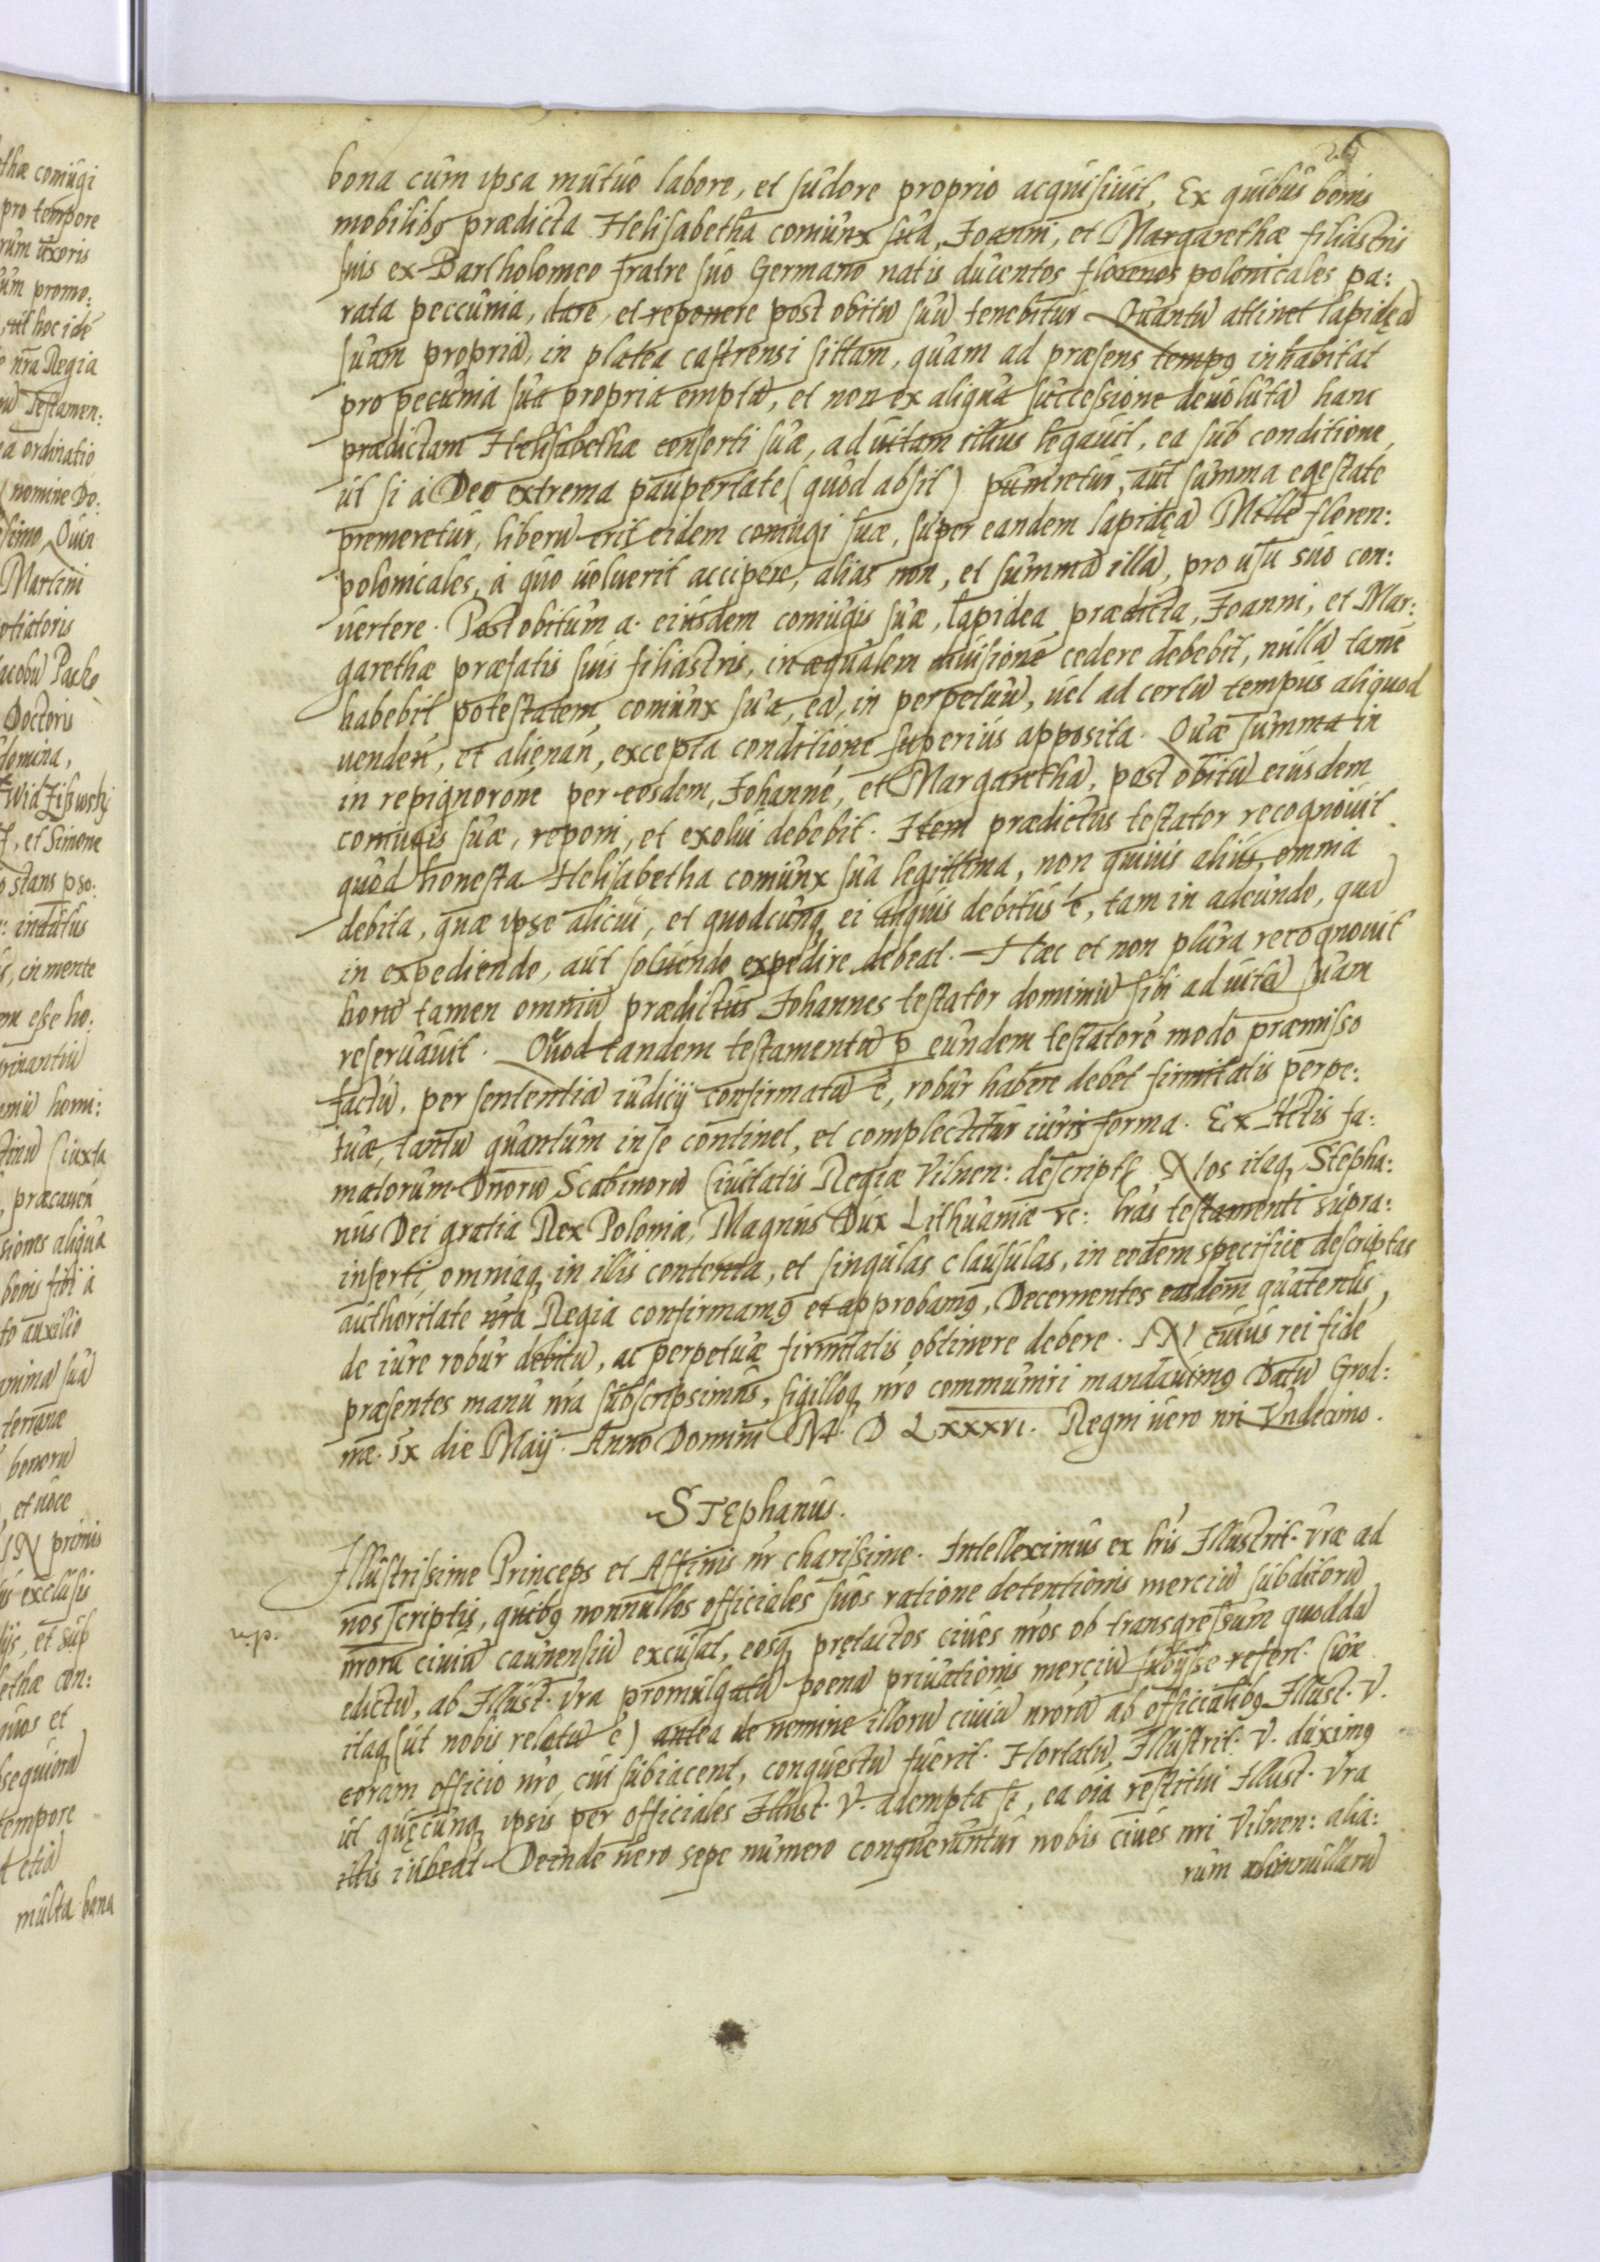 26
bona cum ipsa mutuo labore, et sudore proprio acquisiuit, Ex quibus bonis
mobilibꝫ prædicta Helisabetha coniunx sua, Joanni, et Margarethæ filiastris
suis ex Bartholomeo fratre suo Germano natis ducentos florenos polonicales pa:
rata peccunia, dare, et reponere post obitū suū tenebitur. Quantū attinet lapideā
suam propriā, in platea castrensi sittam, quam ad præsens tempꝰ inhabitat
pro pecunia sua propria emptā, et non ex aliqua successione deuolutā hanc
prædictam Helisabethæ consorti suæ, ad uitam illius legauit, ea sub conditione,
ut si à Deo extrema paupertate (quod absit) puniretur, aut summa egestate
premeretur, liberū erit eidem coniugi suæ, super eandem lapideā Mille floren:
polonicales, à quo uoluerit accipere, alias non, et summā illā, pro usu suo con:
uertere. Post obitum a. eiusdem coniugis suæ, lapidea prædicta, Joanni, et Mar:
garethæ præfatis suis filiastris, in æqualem diuisionē cedere debebit, nullā tamē
habebit potestatem coniunx sua, eā, in perpetuū, uel ad certū tempus aliquod
uendeń, et alienań, excepta conditione superius apposita. Quæ summa in
in repignoroné per eosdem, Johanné, et Margarethā, post obitū eiusdem
coniugis suæ, reponi, et exolui debebit. Item prædictus testator recognouit
quod honesta Helisabetha coniunx sua legittima, non quiuis alius, omnia
debita, quæ ipse alicui, et quodcunqꝫ ei aliquis debitus é, tam in adeundo, quā
in expediendo, aut soluendo expedire debeat. Hæc et non plura recognouit
bonū tamen omniū prædictus Johannes testator dominiū sibi ad uitā suam
reseruauit. Quod tandem testamentū ꝑ eundem testatoré modo præmisso
factū, per sententiā iudicij confirmatū é, robur habere debet firmitatis perpe:
tuæ, tantū quantum in se continet, et complectitur iuris forma. Ex Actis fa:
matorum Dnorū Scabinorū Ciuitatis Regiæ Vilnen: descript. Nos itaqꝫ Stepha:
nus Dei gratia Rex Poloniæ, Magnus Dux Lithuaniæ etc: lras testamenti supra:
inserti, omniaqꝫ in illis contenta, et singulas clausulas, in eodem specifice descriptas
authoritate nrā Regia confirmamꝰ et approbamꝰ, Decernentes easdem quatenus,
de iure robur debitū, ac perpetuæ firmitatis obtinere debere. IN cuius rei fidé
præsentes manu nra subscripsimus, sigilloqꝫ nro communiri mandauimꝰ Datū Grod:
næ. ix die Maij. Anno Domini M. D LXXXVI. Regni uero nri Vndecimo.
STEphanus.
Illustrissime Princeps et Affinis nr charissime. Intelleximus ex lris Illustrit. Vræ ad
nos scriptis, quibꝫ nonnullos officiales suos ratione detentionis merciū subditorū
nrorū ciuiū caunensiū excusat, eosqꝫ prętactos ciues nros ob transgressum quoddā
edictū, ab Illust. Vra promulgatū poena priuationis merciū subijsse refert.
itaqꝫ (ut nobis relatū é) antea de nemine illorū ciuiū nrorū ab officialibꝫ Illust. V.
coram officio nro, cui subiacent, conquestū fuerit. Hortatū, Illustrit. V. duximꝰ
ut quęcunqꝫ ipsis per officiales Illust. V. adempta sť, ea oia restitui Illust. Vra
illis iubeat. Deinde uero sepe numero conqueruntur nobis ciues nri Vilnen: alia:
rum